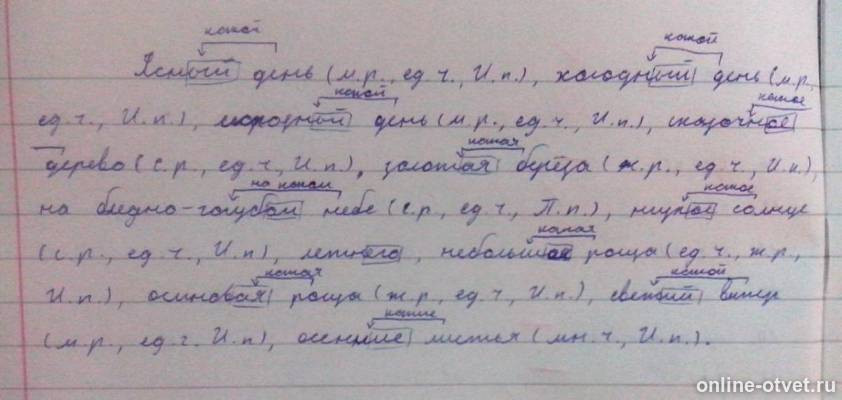 какой какой
Ясный день (м.р., ед.ч., И.п.), холодный день (м.р.,
какой какое
ед.ч., И.п.), день (м.р., ед.ч., И.п.), сказочное
какая
дерево (с.р., ед.ч., И.п.), золотая берёза (ж.р., ед.ч., И.п.),
на каком какое
на бледно-голубом небе (с.р., ед.ч., П.п.), солнце
какая
(с.р., ед.ч., И.п), летнего, небольшая роща (ед.ч., ж.р.,
какая какой
И.п.), осиновая роща (ж.р., ед.ч., И.п.), ветер
какие
(м.р., ед.ч. И.п.), осенние листья (мн.ч., И.п.).
online-otvet.ru